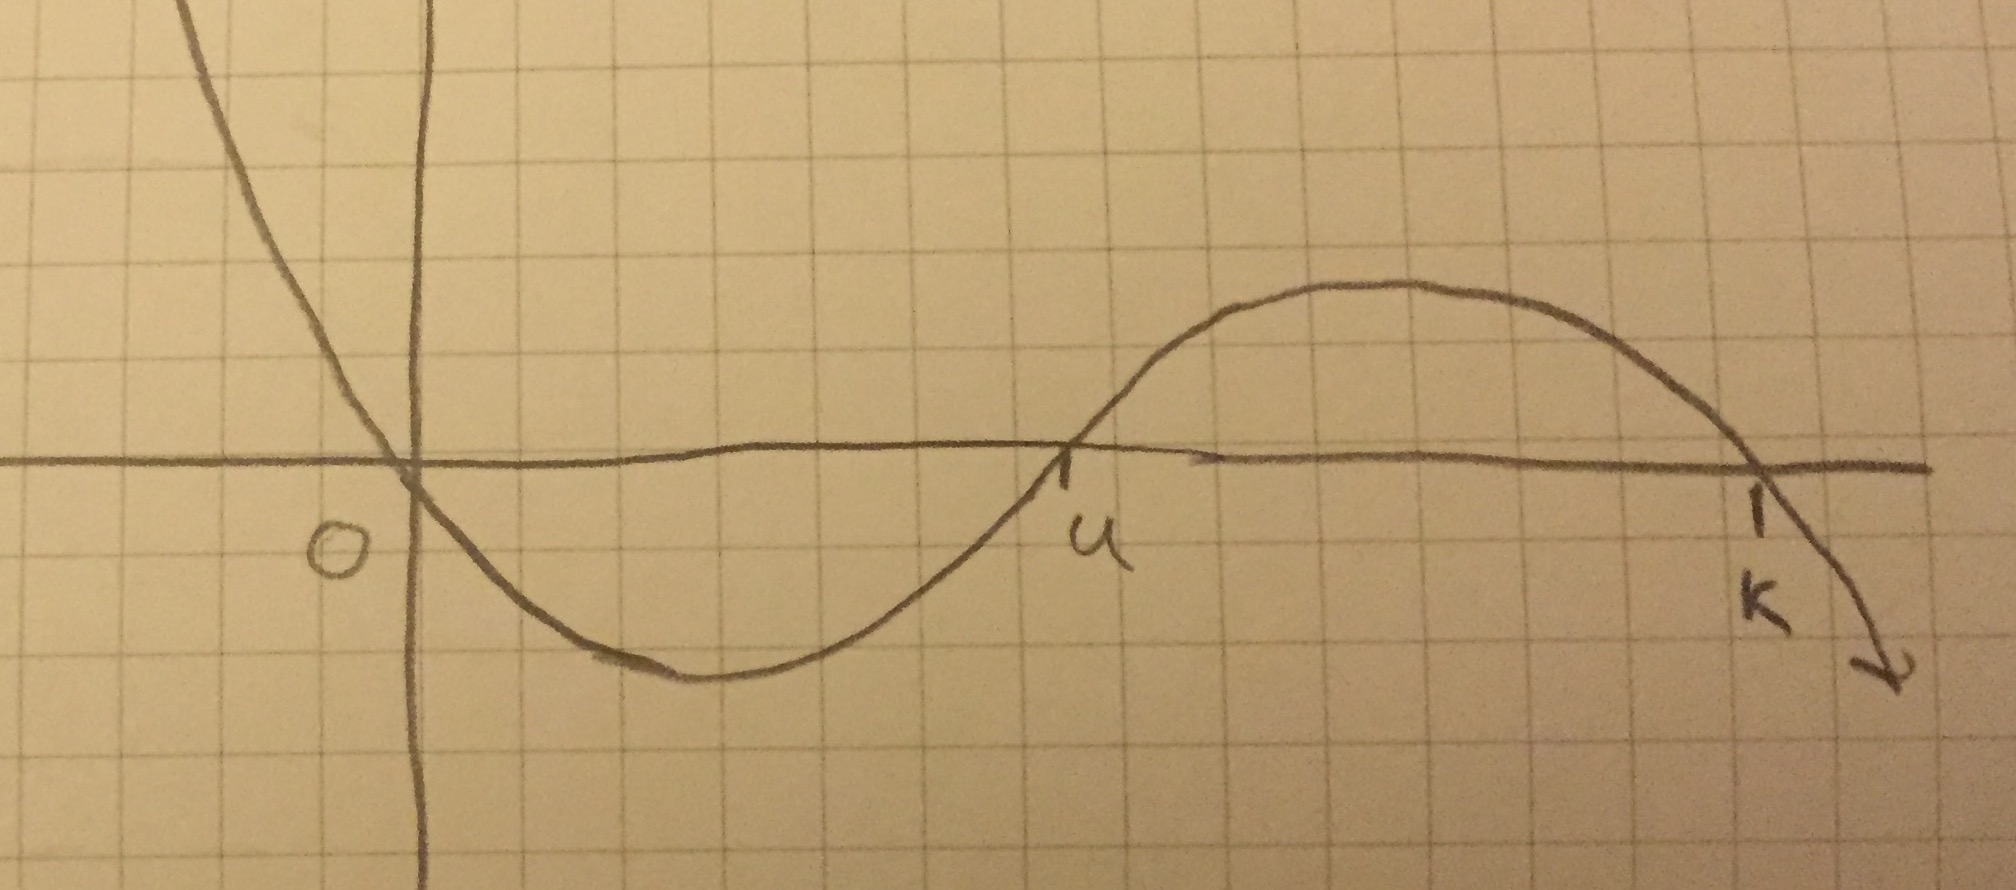 O
u
K